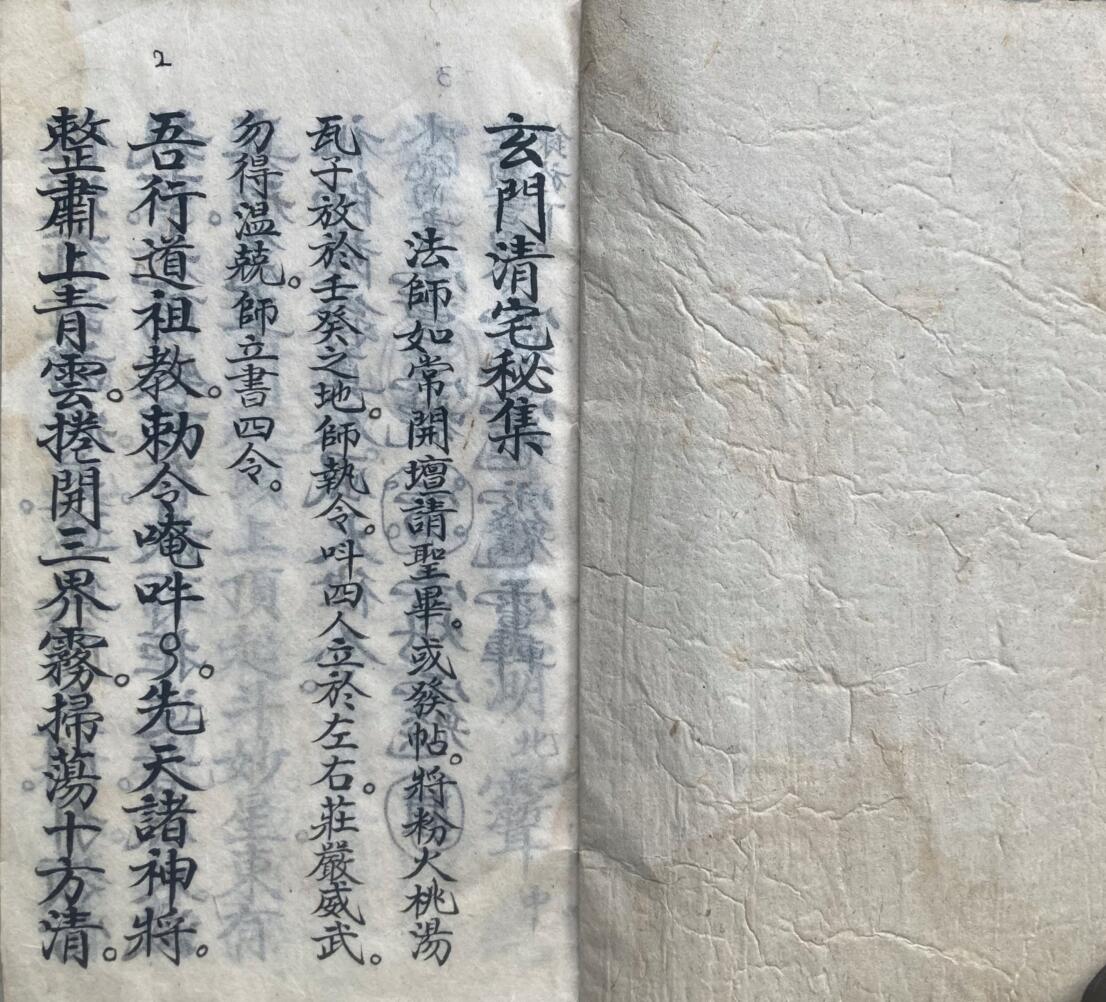 玄門清宅秘集
法師如常開壇請聖畢。或發帖。將粉火桃湯
瓦子放於壬癸之地。師執令。吽四人立於左右。莊嚴威武。
勿得温兢。師立書四令。
吾行道祖教。勅令唵吽。先天諸神將。
整肅上青雲。捲開三界霧。掃蕩十方清。
2